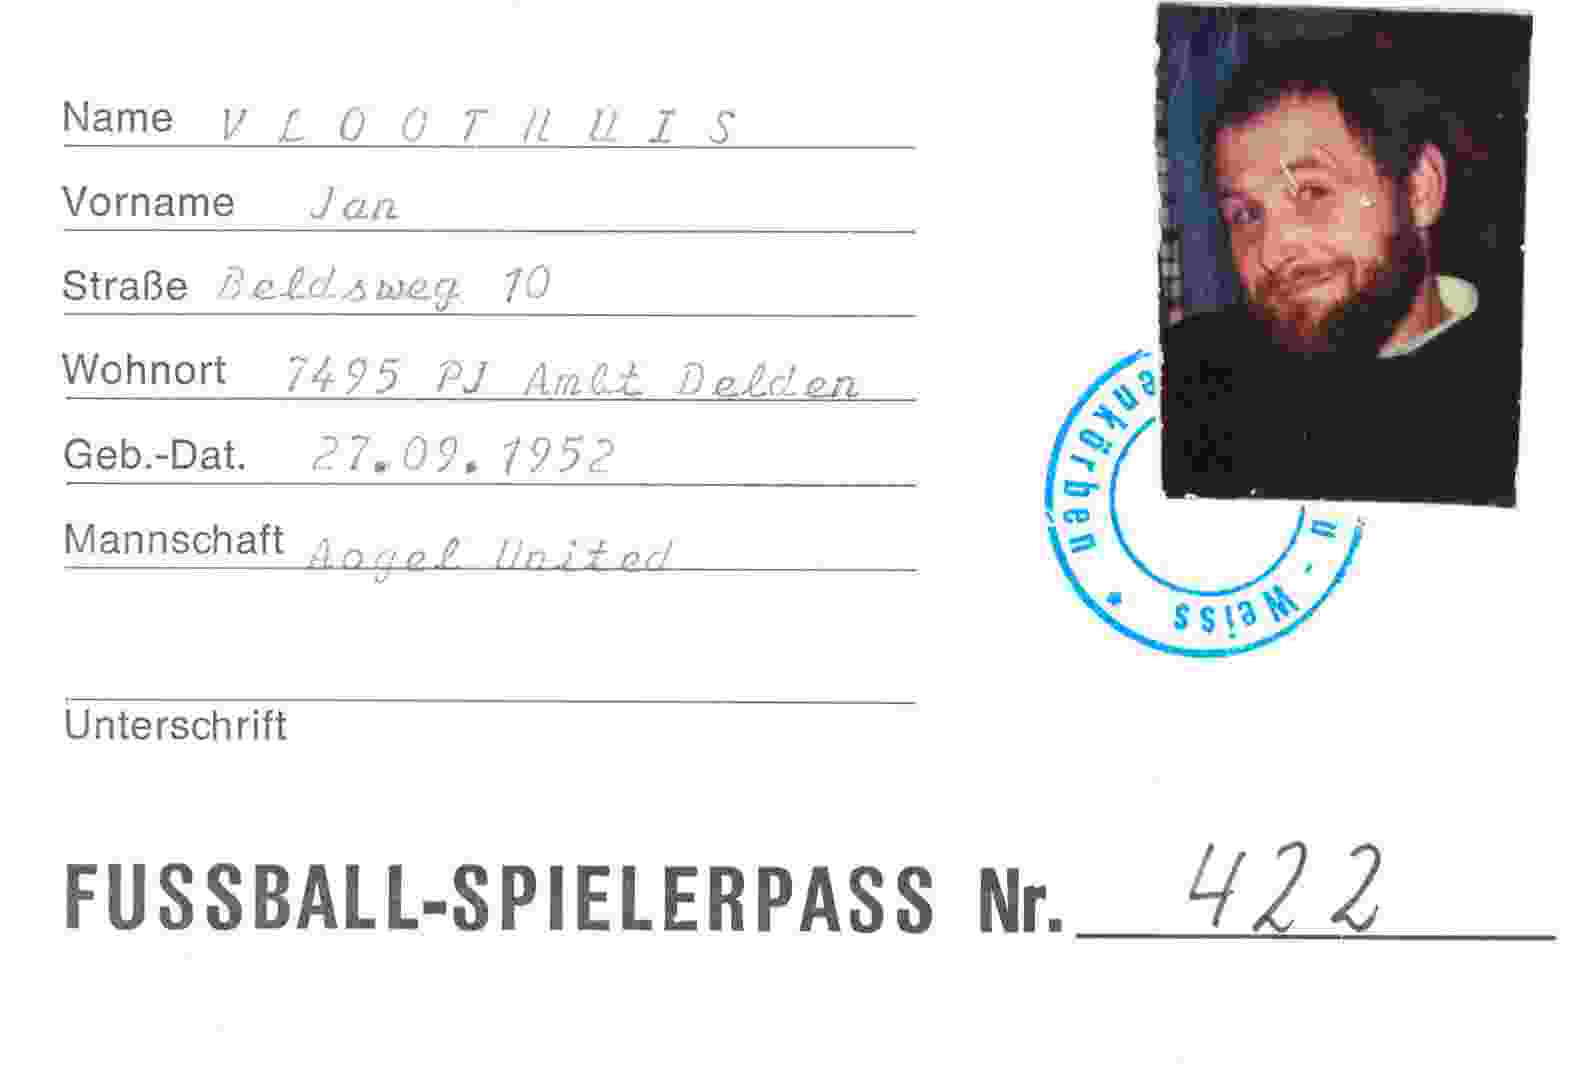 Name V L O O T H U I S
Vorname Jan
Straße Beldsweg 10
Wohnort 7495 PJ Ambt Delden
Geb.-Dat. 27.09.1952
Mannschaft Angel United
Unterschrift
enkörben * u - Weiss
FUSSBALL-SPIELERPASS Nr. 422